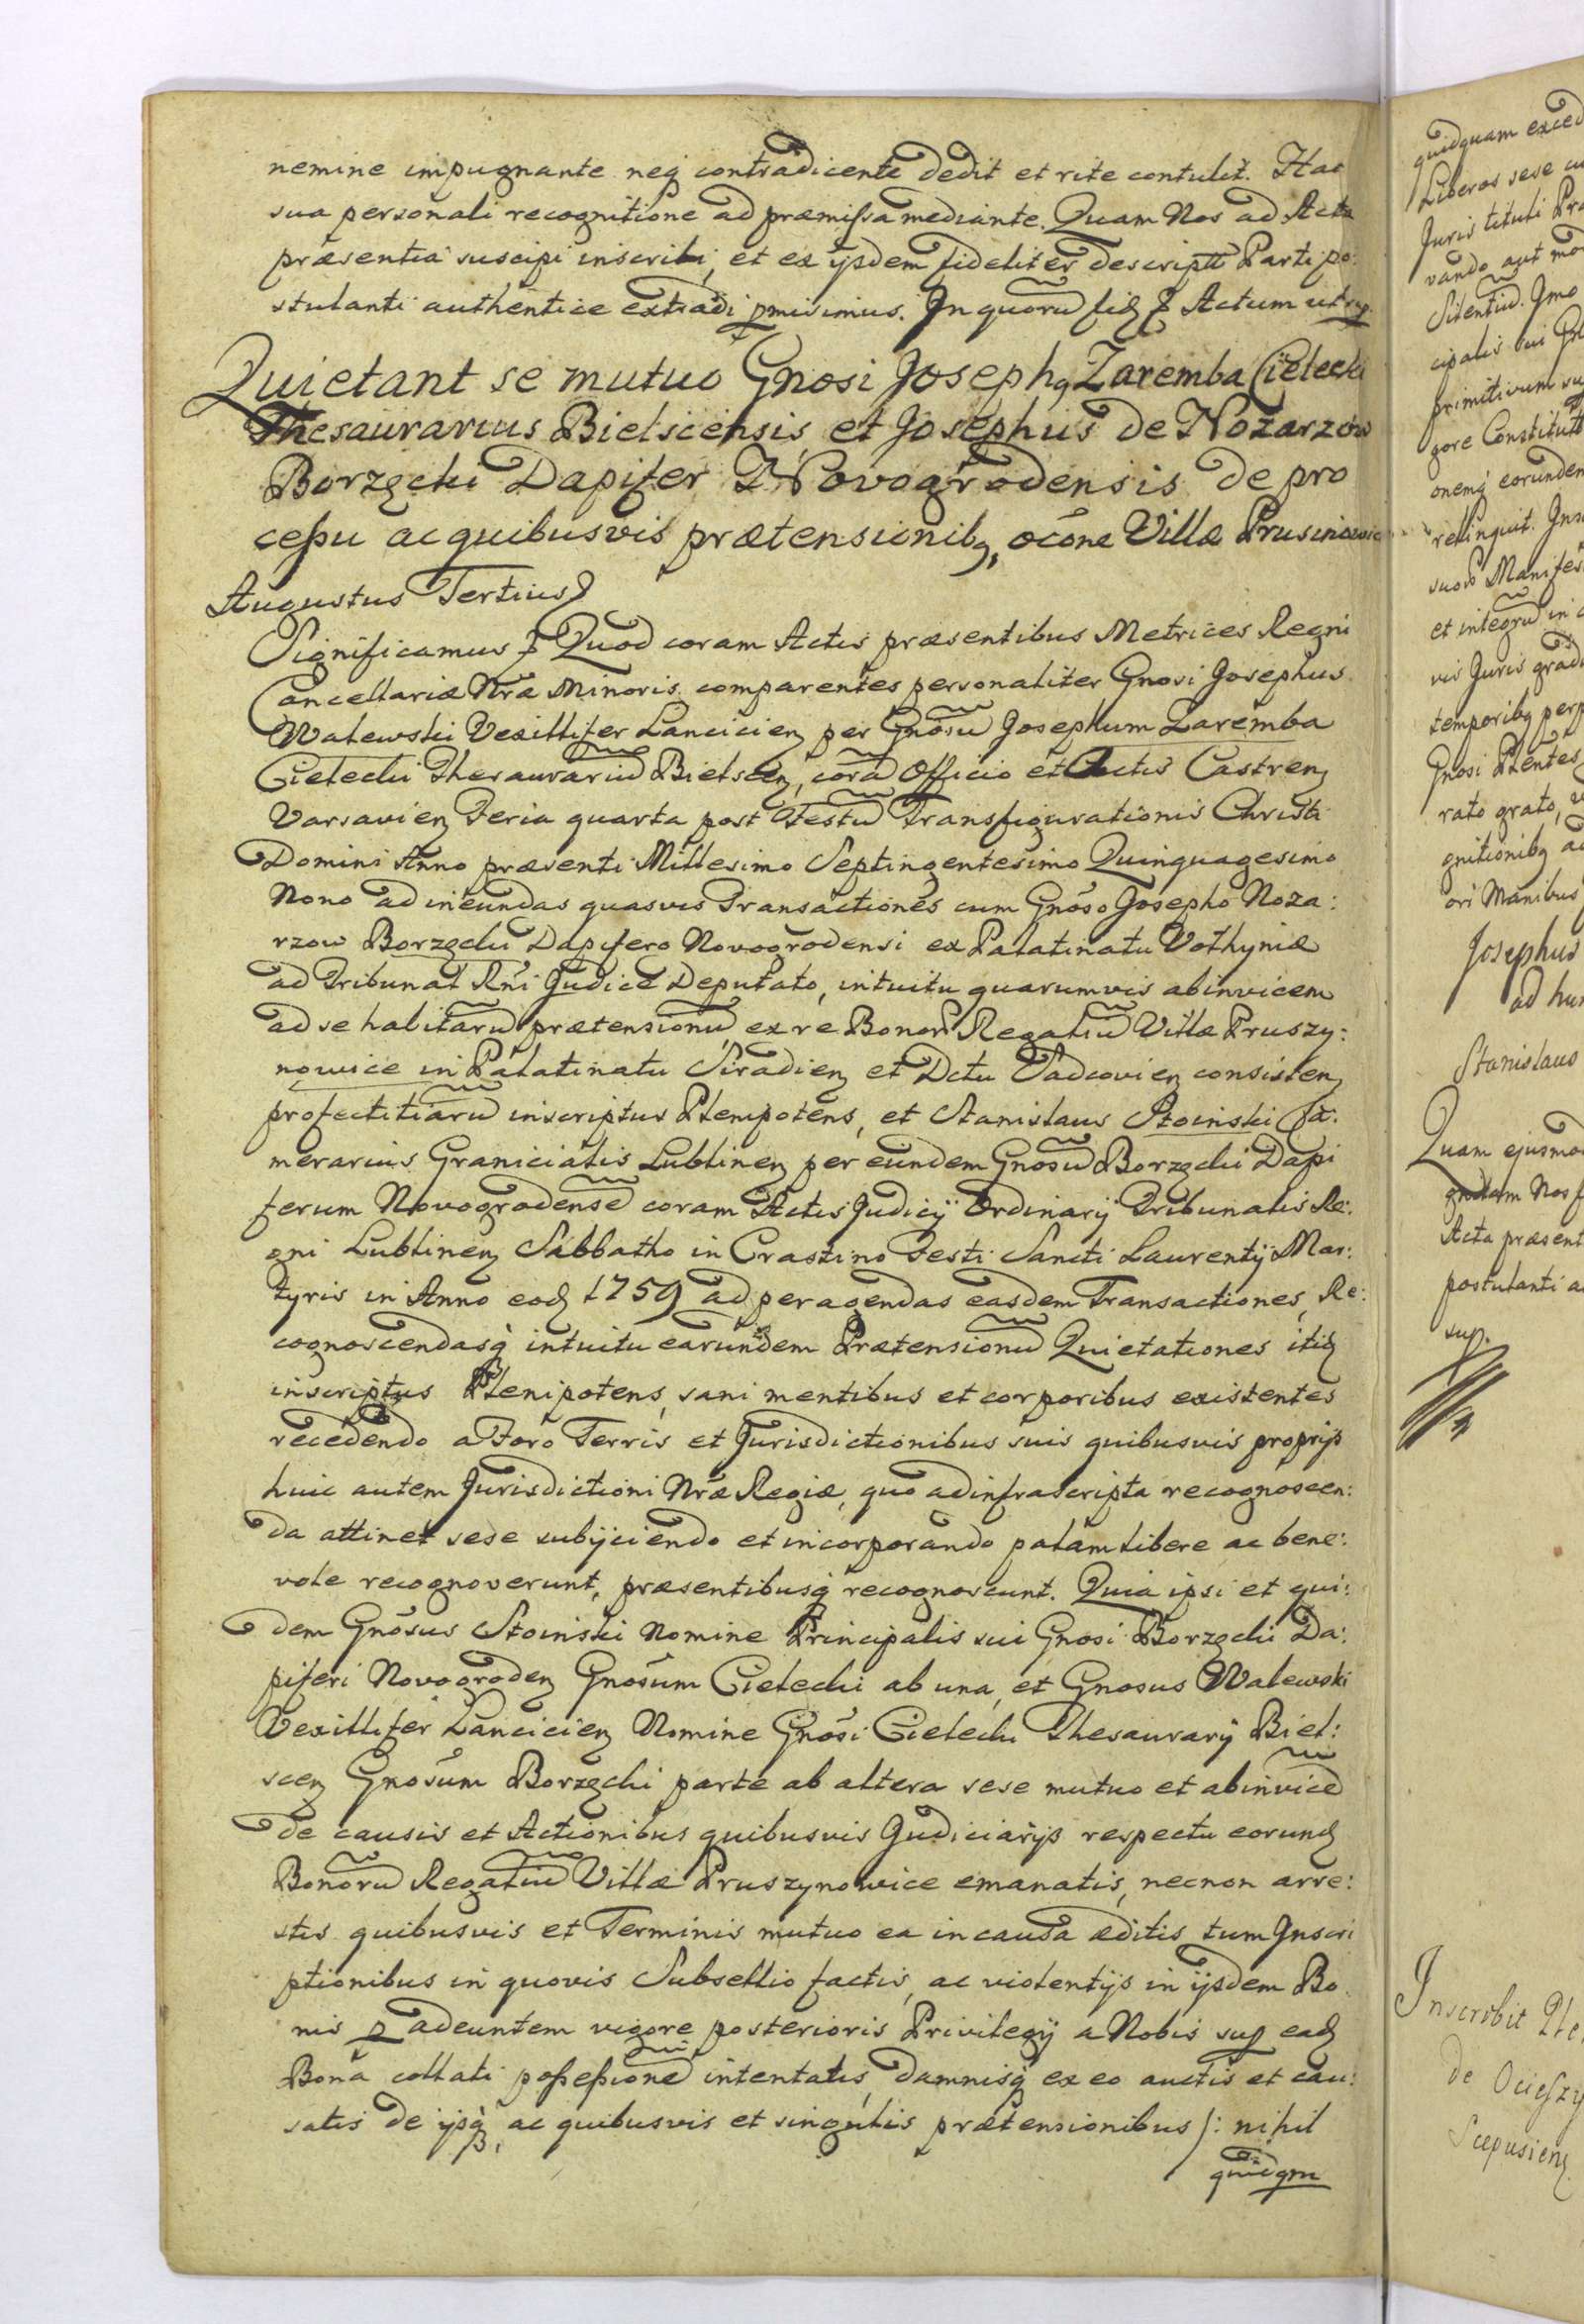 nemine impugnante neq contradicente dedit et rite contulit. Hac
sua personali recognitione ad præmissa mediante. Quam Nos ad Acta
præsentia suscipi inscribi, et ex ijsdem fideliter descriptt Parti po:
stulanti authentice extradi pmisimus. In quorũ fidẽ Actum ut sup.
Quietant se mutuo Gnosi Josephq Zaremba Cielecki
Thesaurarius Bielscensis et Josephus de Nozarzow
Borzęcki Dapifer Novogrodensis de pro
cessu ac quibusvis prætensionibq, ocõne Villæ Prusinowic
Augustus Tertius
Significamus Quod coram Actis præsentibus Metrices Regni
Cancellariæ Nræ Minoris comparentes personaliter Gnosi Josephus
Walewski Vexillifer Lancicien per Gnõsũ Josephum Zaremba
Cielecki Thesaurariũ Bielscen, corã Officio et Actis Castren
Varsavien Feria quarta post Festũ Transfigurationis Christi
Domini Anno præsenti Millesimo Septingentesimo Quinquagesimo
Nono ad ineundas quasvis Transactiones cum Gnõso Josepho Noza:
rzow Borzęcki Dapifero Novogrodensi ex Palatinatu Volhyniæ
ad Tribunal Rñi Judice Deputato, intuitu quarumvis abinvicem
ad se habitarũ prætensionũ ex re Bonor Regaliũ Villæ Pruszy:
nowice in Palatinatu Siradien et Dctu Sadcovien consisten
profectitiarũ inscriptus Plenipotens, et Stanislaus Stoinski Ca:
merarius Granicialis Lublinen per eundem Gnosũ Borzęcki Dapi
ferum Novogrodensẽ coram Actis Judicij Ordinarij Tribunalis Re:
gni Lublinen Sabbatho in Crastino Festi Sancti Laurentij Mar:
tyris in Anno eod 1759 ad peragendas easdem Transactiones, Re:
cognoscendasq intuitu earundem Prætensionũ Quietationes itid
inscriptus Plenipotens, sani mentibus et corporibus existentes
recedendo a Foro Terris et Jurisdictionibus suis quibusvis proprijs
huic autem Jurisdictioni Nræ Regiæ, quo ad infrascripta recognoscen:
da attinet sese subijciendo et incorporando palam libere ac bene:
vole recognoverunt, præsentibusq recognoscunt. Quia ipsi et qui:
dem Gnõsus Stoinski Nomine Principalis sui Gnosi Borzęcki Da:
piferi Novogroden Gnosum Cielecki ab una, et Gnosus Walewski
Vexillifer Lancicien Nomine Gnõsi Cielecki Thesaurarij Biel:
scen Gnosum Borzęcki parte ab altera sese mutuo et abinvicẽ
de causis et Actionibus quibusvis Judiciarijs respectu eorund
Bonorũ Regaliũ Villæ Pruszynowice emanatis, necnon arre:
stis quibusvis et Terminis mutuo ea in causa æditis tum Inscri
ptionibus in quovis Subsellio factis, ac violentijs in ijsdem Bo
nis p adeuntem vigore posterioris Privilegij a Nobis sup ead
Bona collati possessionẽ intentatis, damnisq ex eo auctis et cau:
satis de ijsq, ac quibusvis et singulis prætensionibus /: nihil
quidqm
quidquam exced
Liberos sese
Juris tituli Pr
vando aut mo
Silentiũ. Imo
cipalis sui Gn
primitivum su
gore Constitut
onemq eorundem
relinquit. Ins
suos Manifes
et integrũ in
vis Juris grad
temporibq perp
Gnosi Plentes
rato grato,
gnitionibq ac
ori Manibus
Josephus
ad hu
Stanislaus
Quam ejusmod
Nos f
Acta præsent
postulanti a
sup.
Inscribit Ple
de Ocieszy
Scepusien